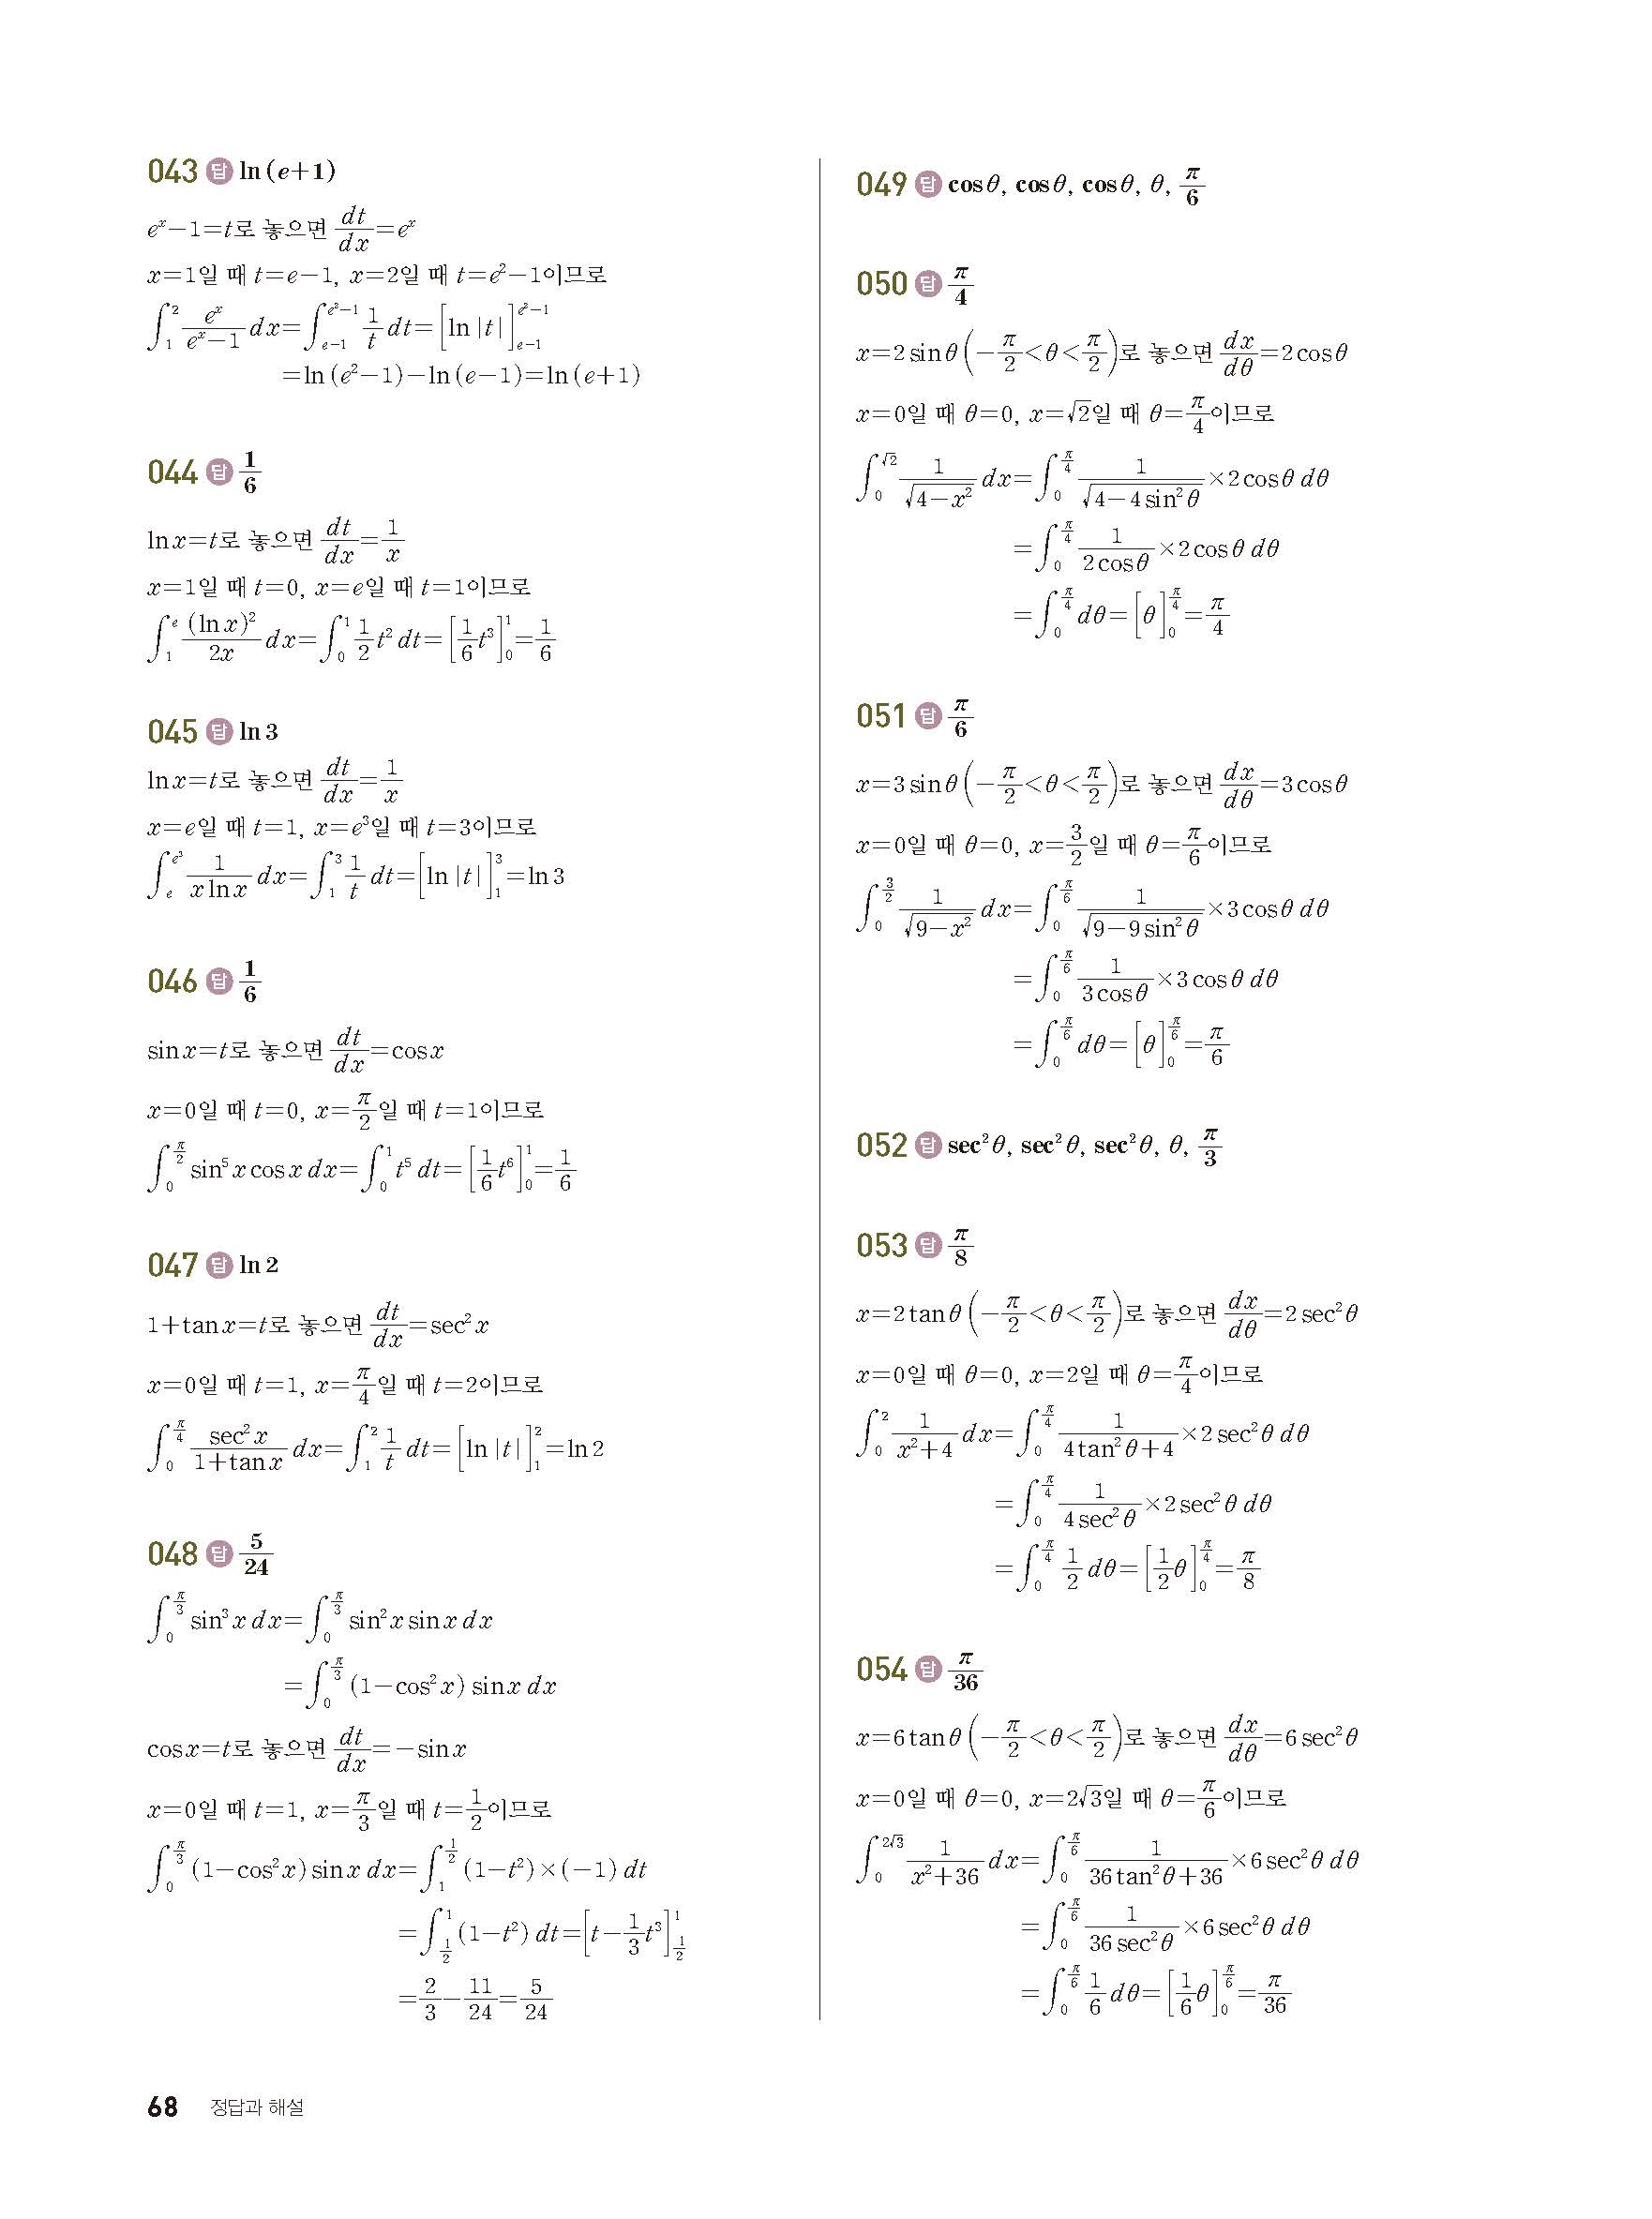 043 답 ln(e+1)
e^x−1=t로 놓으면 dt/dx=e^x
x=1일 때 t=e−1, x=2일 때 t=e²−1이므로
∫_1^2 e^x/(e^x−1) dx=∫_{e−1}^{e²−1} 1/t dt=[ln|t|]_{e−1}^{e²−1}
=ln(e²−1)−ln(e−1)=ln(e+1)
044 답 1/6
ln x=t로 놓으면 dt/dx=1/x
x=1일 때 t=0, x=e일 때 t=1이므로
∫_1^e (ln x)²/2x dx=∫_0^1 1/2 t² dt=[1/6 t³]_0^1=1/6
045 답 ln 3
ln x=t로 놓으면 dt/dx=1/x
x=e일 때 t=1, x=e³일 때 t=3이므로
∫_e^{e³} 1/(x ln x) dx=∫_1^3 1/t dt=[ln|t|]_1^3=ln 3
046 답 1/6
sin x=t로 놓으면 dt/dx=cos x
x=0일 때 t=0, x=π/2일 때 t=1이므로
∫_0^{π/2} sin⁵x cos x dx=∫_0^1 t⁵ dt=[1/6 t⁶]_0^1=1/6
047 답 ln 2
1+tan x=t로 놓으면 dt/dx=sec²x
x=0일 때 t=1, x=π/4일 때 t=2이므로
∫_0^{π/4} sec²x/(1+tan x) dx=∫_1^2 1/t dt=[ln|t|]_1^2=ln 2
048 답 5/24
∫_0^{π/3} sin³x dx=∫_0^{π/3} sin²x sin x dx
=∫_0^{π/3} (1−cos²x) sin x dx
cos x=t로 놓으면 dt/dx=−sin x
x=0일 때 t=1, x=π/3일 때 t=1/2이므로
∫_0^{π/3} (1−cos²x) sin x dx=∫_1^{1/2} (1−t²)×(−1) dt
=∫_{1/2}^1 (1−t²) dt=[t−1/3 t³]_{1/2}^1
=2/3−11/24=5/24
049 답 cos θ, cos θ, cos θ, θ, π/6
050 답 π/4
x=2 sin θ(−π/2<θ<π/2)로 놓으면 dx/dθ=2 cos θ
x=0일 때 θ=0, x=√2일 때 θ=π/4이므로
∫_0^{√2} 1/√(4−x²) dx=∫_0^{π/4} 1/√(4−4 sin²θ)×2 cos θ dθ
=∫_0^{π/4} 1/(2 cos θ)×2 cos θ dθ
=∫_0^{π/4} dθ=[θ]_0^{π/4}=π/4
051 답 π/6
x=3 sin θ(−π/2<θ<π/2)로 놓으면 dx/dθ=3 cos θ
x=0일 때 θ=0, x=3/2일 때 θ=π/6이므로
∫_0^{3/2} 1/√(9−x²) dx=∫_0^{π/6} 1/√(9−9 sin²θ)×3 cos θ dθ
=∫_0^{π/6} 1/(3 cos θ)×3 cos θ dθ
=∫_0^{π/6} dθ=[θ]_0^{π/6}=π/6
052 답 sec²θ, sec²θ, sec²θ, θ, π/3
053 답 π/8
x=2 tan θ(−π/2<θ<π/2)로 놓으면 dx/dθ=2 sec²θ
x=0일 때 θ=0, x=2일 때 θ=π/4이므로
∫_0^2 1/(x²+4) dx=∫_0^{π/4} 1/(4 tan²θ+4)×2 sec²θ dθ
=∫_0^{π/4} 1/(4 sec²θ)×2 sec²θ dθ
=∫_0^{π/4} 1/2 dθ=[1/2 θ]_0^{π/4}=π/8
054 답 π/36
x=6 tan θ(−π/2<θ<π/2)로 놓으면 dx/dθ=6 sec²θ
x=0일 때 θ=0, x=2√3일 때 θ=π/6이므로
∫_0^{2√3} 1/(x²+36) dx=∫_0^{π/6} 1/(36 tan²θ+36)×6 sec²θ dθ
=∫_0^{π/6} 1/(36 sec²θ)×6 sec²θ dθ
=∫_0^{π/6} 1/6 dθ=[1/6 θ]_0^{π/6}=π/36
68 정답과 해설